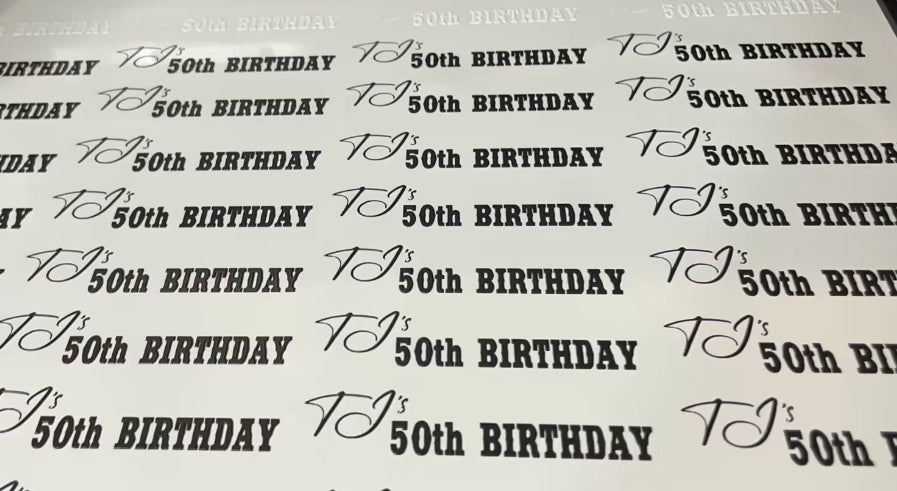 BIRTHDAY 50th BIRTHDAY 50th BIRTHDAY 50th BIRTHDAY
BIRTHDAY TJ's 50th BIRTHDAY TJ's 50th BIRTHDAY TJ's 50th BIRTHDAY
RTHDAY TJ's 50th BIRTHDAY TJ's 50th BIRTHDAY TJ's 50th BIRTHDAY
DAY TJ's 50th BIRTHDAY TJ's 50th BIRTHDAY TJ's 50th BIRTHDA
AY TJ's 50th BIRTHDAY TJ's 50th BIRTHDAY TJ's 50th BIRTH
TJ's 50th BIRTHDAY TJ's 50th BIRTHDAY TJ's 50th BIRT
TJ's 50th BIRTHDAY TJ's 50th BIRTHDAY TJ's 50th BI
J's 50th BIRTHDAY TJ's 50th BIRTHDAY TJ's 50th